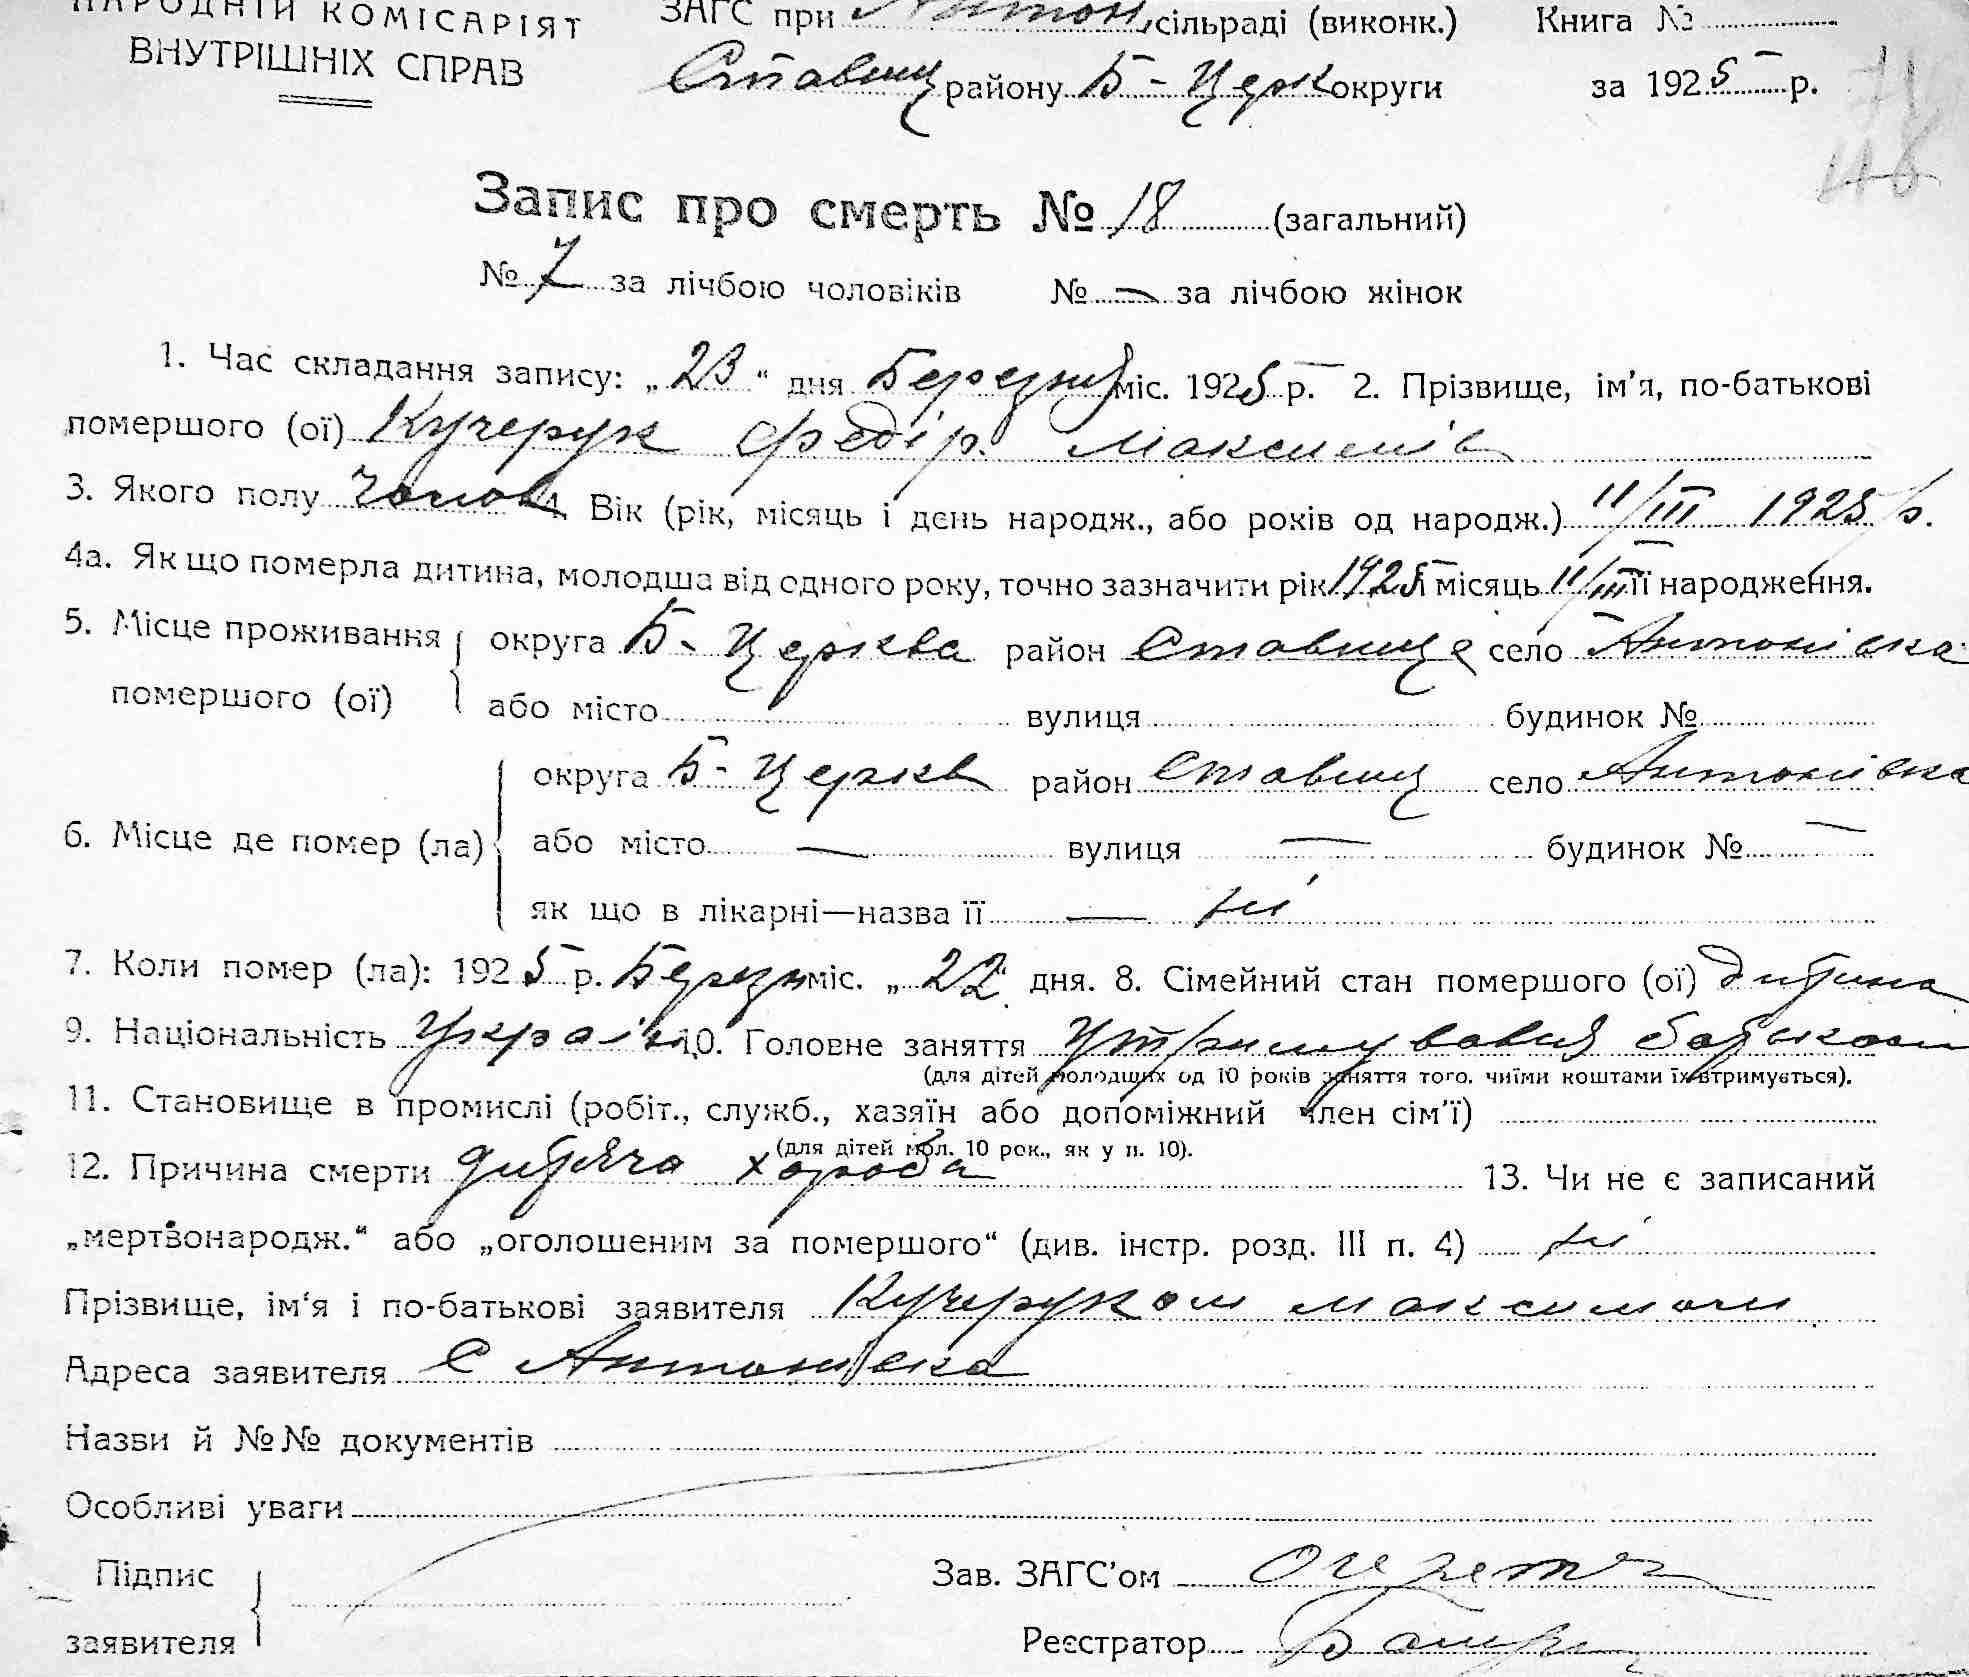 НАРОДНІЙ КОМІСАРІЯТ ЗАГС при Антон. сільраді (виконк.) Книга №
ВНУТРІШНІХ СПРАВ Ставищ району Б-Церк округи за 1925 р.
71
48
Запис про смерть № 18 (загальний)
№ 7 за лічбою чоловіків № — за лічбою жінок
1. Час складання запису: „23“ дня Березня міс. 1925 р. 2. Прізвище, ім'я, по-батькові
помершого (ої) Кучерук Федір. Максимів
3. Якого полу чолов 4. Вік (рік, місяць і день народж., або років од народж.) 11/III 1925 р.
4а. Як що померла дитина, молодша від одного року, точно зазначити рік 1925 і місяць 11/III її народження.
5. Місце проживання округа Б-Церква район Ставище село Антонівка
помершого (ої) або місто вулиця будинок №
округа Б-Церкв район Ставищ село Антонівка
6. Місце де помер (ла) або місто — вулиця — будинок № —
як що в лікарні—назва її — ні
7. Коли помер (ла): 1925 р. Березн міс. „22“ дня. 8. Сімейний стан помершого (ої) дитина
9. Національність Украін 10. Головне заняття утримування батьком
(для дітей молодших од 10 років заняття того. чиїми коштами їх втримується).
11. Становище в промислі (робіт., служб., хазяїн або допоміжний член сім'ї)
(для дітей мол. 10 рок., як у п. 10).
12. Причина смерти дитяча хороба 13. Чи не є записаний
„мертвонародж.“ або „оголошеним за помершого“ (див. інстр. розд. III п. 4) ні
Прізвище, ім'я і по-батькові заявителя Кучеруком Максимом
Адреса заявителя с Антонівка
Назви й №№ документів
Особливі уваги
Підпис Зав. ЗАГС'ом
заявителя Реєстратор